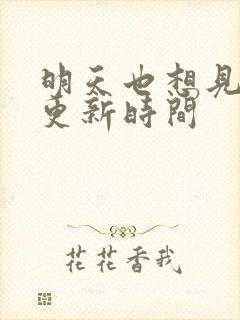 明天也想見
更新時間
花花香我